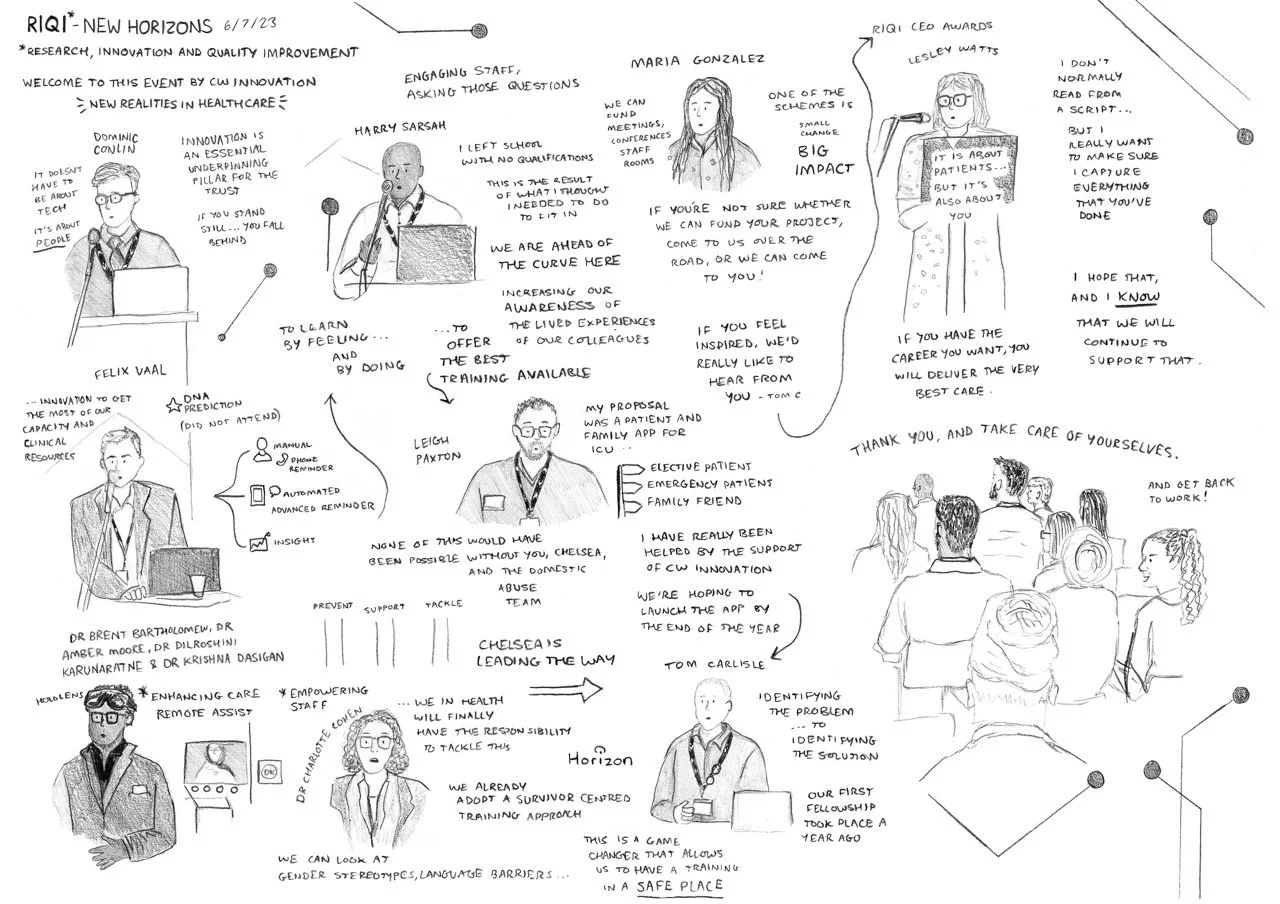 RIQI* - NEW HORIZONS 6/7/23
*RESEARCH, INNOVATION AND QUALITY IMPROVEMENT
WELCOME TO THIS EVENT BY CW INNOVATION
NEW REALITIES IN HEALTHCARE
DOMINIC
CONLIN
IT DOESN'T
HAVE TO
BE ABOUT
TECH
IT'S ABOUT
PEOPLE
INNOVATION IS
AN ESSENTIAL
UNDERPINNING
PILLAR FOR THE
TRUST
IF YOU STAND
STILL... YOU FALL
BEHIND
ENGAGING STAFF,
ASKING THOSE QUESTIONS
HARRY SARSAH
I LEFT SCHOOL
WITH NO QUALIFICATIONS
THIS IS THE RESULT
OF WHAT I THOUGHT
I NEEDED TO DO
TO FIT IN
WE ARE AHEAD OF
THE CURVE HERE
INCREASING OUR
AWARENESS OF
THE LIVED EXPERIENCES
OF OUR COLLEAGUES
MARIA GONZALEZ
WE CAN
FUND
MEETINGS,
CONFERENCES
STAFF
ROOMS
ONE OF THE
SCHEMES IS
SMALL
CHANGE
BIG
IMPACT
IF YOU'RE NOT SURE WHETHER
WE CAN FUND YOUR PROJECT,
COME TO US OVER THE
ROAD, OR WE CAN COME
TO YOU!
IF YOU FEEL
INSPIRED, WE'D
REALLY LIKE TO
HEAR FROM
YOU - TOM C
RIQI CEO AWARDS
LESLEY WATTS
IT IS ABOUT
PATIENTS...
BUT IT'S
ALSO ABOUT
YOU
I DON'T
NORMALLY
READ FROM
A SCRIPT...
BUT I
REALLY WANT
TO MAKE SURE
I CAPTURE
EVERYTHING
THAT YOU'VE
DONE
I HOPE THAT,
AND I KNOW
THAT WE WILL
CONTINUE TO
SUPPORT THAT.
IF YOU HAVE THE
CAREER YOU WANT, YOU
WILL DELIVER THE VERY
BEST CARE.
THANK YOU, AND TAKE CARE OF YOURSELVES.
AND GET BACK
TO WORK!
FELIX VAAL
... INNOVATION TO GET
THE MOST OF OUR
CAPACITY AND
CLINICAL
RESOURCES
DNA
PREDICTION
(DID NOT ATTEND)
MANUAL
PHONE
REMINDER
AUTOMATED
ADVANCED REMINDER
INSIGHT
TO LEARN
BY FEELING...
AND
BY DOING
...TO
OFFER
THE BEST
TRAINING AVAILABLE
LEIGH
PAXTON
MY PROPOSAL
WAS A PATIENT AND
FAMILY APP FOR
ICU...
ELECTIVE PATIENT
EMERGENCY PATIENT
FAMILY FRIEND
I HAVE REALLY BEEN
HELPED BY THE SUPPORT
OF CW INNOVATION
WE'RE HOPING TO
LAUNCH THE APP BY
THE END OF THE YEAR
NONE OF THIS WOULD HAVE
BEEN POSSIBLE WITHOUT YOU, CHELSEA,
AND THE DOMESTIC
ABUSE
TEAM
PREVENT SUPPORT TACKLE
CHELSEA IS
LEADING THE WAY
DR BRENT BARTHOLOMEW, DR
AMBER MOORE, DR DILROSHINI
KARUNARATNE & DR KRISHNA DASIGAN
HOLOLENS
*ENHANCING CARE
REMOTE ASSIST
OK
*EMPOWERING
STAFF
DR CHARLOTTE COHEN
...WE IN HEALTH
WILL FINALLY
HAVE THE RESPONSIBILITY
TO TACKLE THIS
WE ALREADY
ADOPT A SURVIVOR CENTRED
TRAINING APPROACH
WE CAN LOOK AT
GENDER STEREOTYPES, LANGUAGE BARRIERS...
Horizon
TOM CARLISLE
IDENTIFYING
THE PROBLEM
... TO
IDENTIFYING
THE SOLUTION
OUR FIRST
FELLOWSHIP
TOOK PLACE A
YEAR AGO
THIS IS A GAME
CHANGER THAT ALLOWS
US TO HAVE A TRAINING
IN A SAFE PLACE